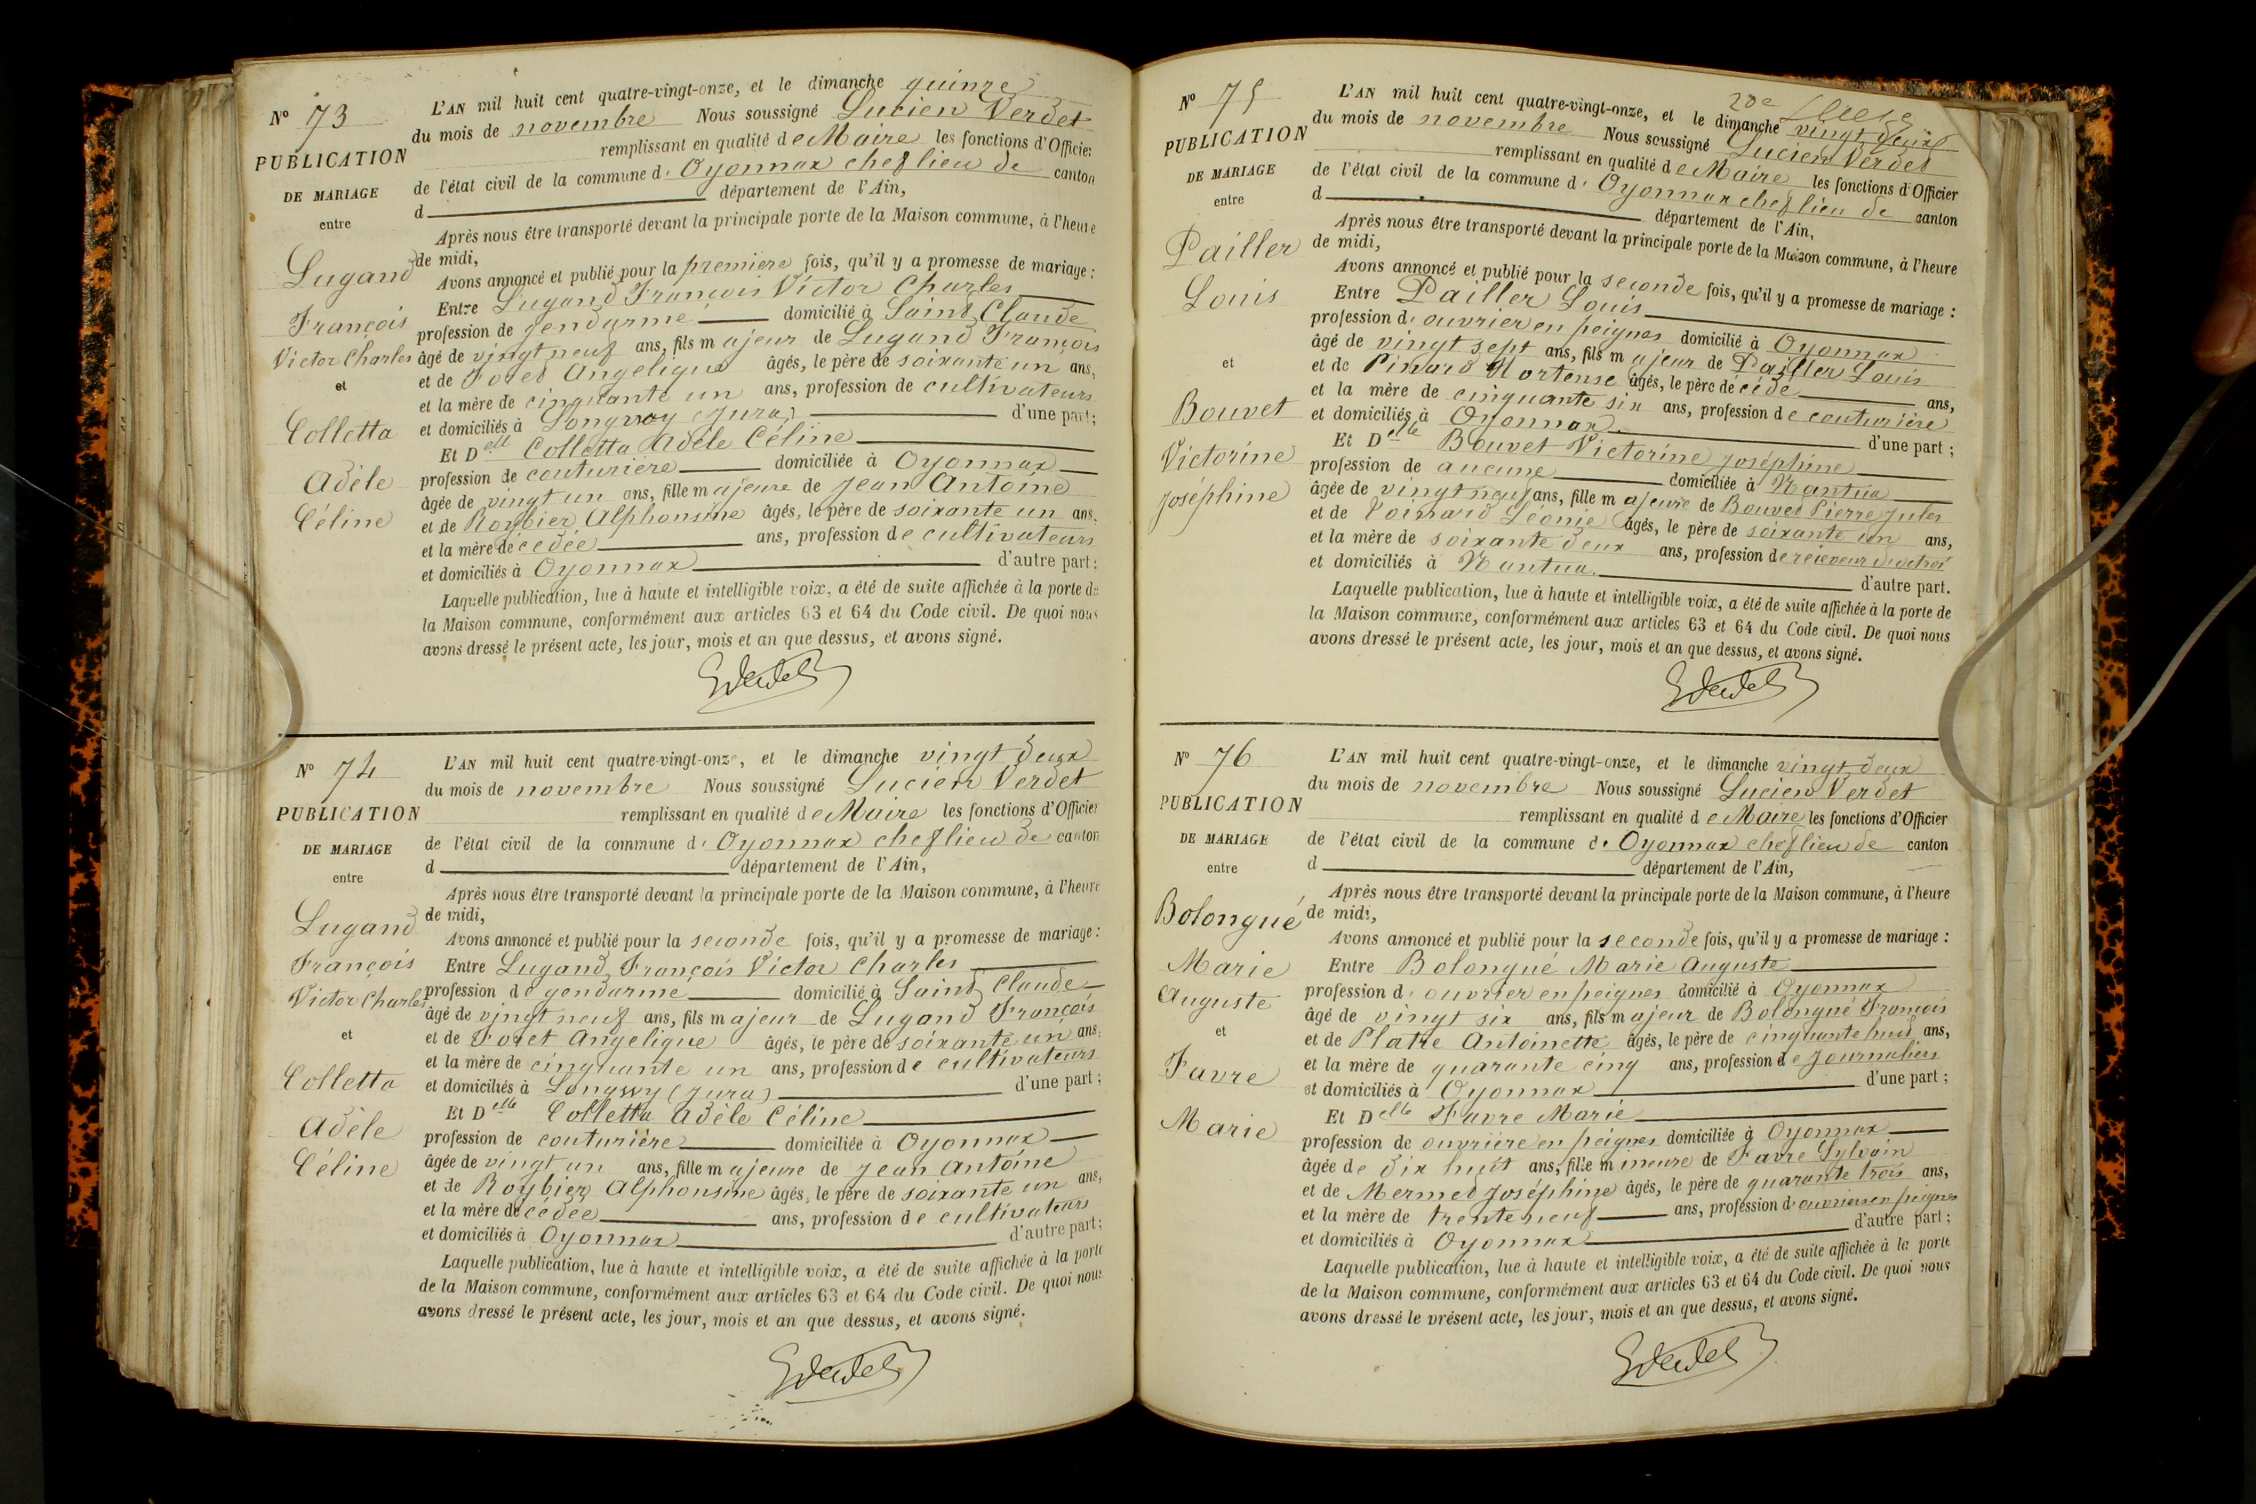 N° 73
PUBLICATION
DE MARIAGE
entre
Lugand
François
Victor Charles
et
Colletta
Adèle
Céline
L'AN mil huit cent quatre-vingt-onze, et le dimanche quinze
du mois de novembre Nous soussigné Lucien Verdet
remplissant en qualité de Maire les fonctions d'Officier
de l'état civil de la commune d' Oyonnax chef lieu de canton
d département de l'Ain,
Après nous être transporté devant la principale porte de la Maison commune, à l'heure
de midi,
Avons annoncé et publié pour la premiere fois, qu'il y a promesse de mariage :
Entre Lugand François Victor Charles
profession de gendarme domicilié à Saint Claude
âgé de vingt neuf ans, fils majeur de Lugand François
et de Foret Angelique âgés, le père de soixante un ans,
et la mère de cinquante un ans, profession de cultivateurs
et domiciliés à Longwy (Jura) d'une part;
Et Delle Colletta Adèle Céline
profession de couturière domiciliée à Oyonnax
âgée de vingt un ans, fille majeure de Jean Antoine
et de Roybier Alphonsine âgés, le père de soixante un ans,
et la mère décédée ans, profession de cultivateurs
et domiciliés à Oyonnax d'autre part:
Laquelle publication, lue à haute et intelligible voix, a été de suite affichée à la porte de
la Maison commune, conformément aux articles 63 et 64 du Code civil. De quoi nous
avons dressé le présent acte, les jour, mois et an que dessus, et avons signé.
N° 74
PUBLICATION
DE MARIAGE
entre
Lugand
François
Victor Charles
et
Colletta
Adèle
Céline
L'AN mil huit cent quatre-vingt-onze, et le dimanche vingt deux
du mois de novembre Nous soussigné Lucien Verdet
remplissant en qualité de Maire les fonctions d'Officier
de l'état civil de la commune d' Oyonnax chef lieu de canton
d département de l'Ain,
Après nous être transporté devant la principale porte de la Maison commune, à l'heure
de midi,
Avons annoncé et publié pour la seconde fois, qu'il y a promesse de mariage :
Entre Lugand François Victor Charles
profession de gendarme domicilié à Saint Claude
âgé de vingt neuf ans, fils majeur de Lugand François
et de Foret Angelique âgés, le père de soixante un ans,
et la mère de cinquante un ans, profession de cultivateurs
et domiciliés à Longwy (Jura) d'une part;
Et Delle Colletta Adèle Céline
profession de couturière domiciliée à Oyonnax
âgée de vingt un ans, fille majeure de Jean Antoine
et de Roybier Alphonsine âgés, le père de soixante un ans,
et la mère décédée ans, profession de cultivateurs
et domiciliés à Oyonnax d'autre part;
Laquelle publication, lue à haute et intelligible voix, a été de suite affichée à la porte
de la Maison commune, conformément aux articles 63 et 64 du Code civil. De quoi nous
avons dressé le présent acte, les jour, mois et an que dessus, et avons signé.
N° 75
PUBLICATION
DE MARIAGE
entre
Pailler
Louis
et
Bouvet
Victorine
Joséphine
L'AN mil huit cent quatre-vingt-onze, et le dimanche vingt deux
du mois de novembre Nous soussigné Lucien Verdet
remplissant en qualité de Maire les fonctions d'Officier
de l'état civil de la commune d' Oyonnax chef lieu de canton
d département de l'Ain,
Après nous être transporté devant la principale porte de la Maison commune, à l'heure
de midi,
Avons annoncé et publié pour la seconde fois, qu'il y a promesse de mariage :
Entre Pailler Louis
profession d' ouvrier en peignes domicilié à Oyonnax
âgé de vingt sept ans, fils majeur de Pailler Louis
et de Pinard Hortense âgés, le père décédé ans,
et la mère de cinquante six ans, profession de couturière
et domiciliés à Oyonnax d'une part ;
Et Delle Bouvet Victorine Joséphine
profession de aucune domiciliée à Nantua
âgée de vingt neuf ans, fille majeure de Bouvet Pierre Jules
et de Léonie âgés, le père de soixante un ans,
et la mère de soixante deux ans, profession de receveur d'octroi
et domiciliés à Nantua. d'autre part.
Laquelle publication, lue à haute et intelligible voix, a été de suite affichée à la porte de
la Maison commune, conformément aux articles 63 et 64 du Code civil. De quoi nous
avons dressé le présent acte, les jour, mois et an que dessus, et avons signé.
N° 76
PUBLICATION
DE MARIAGE
entre
Bolongué
Marie
Auguste
et
Favre
Marie
L'AN mil huit cent quatre-vingt-onze, et le dimanche vingt deux
du mois de novembre Nous soussigné Lucien Verdet
remplissant en qualité de Maire les fonctions d'Officier
de l'état civil de la commune d' Oyonnax chef lieu de canton
d département de l'Ain,
Après nous être transporté devant la principale porte de la Maison commune, à l'heure
de midi,
Avons annoncé et publié pour la seconde fois, qu'il y a promesse de mariage :
Entre Bolongué Marie Auguste
profession d' ouvrier en peignes domicilié à Oyonnax
âgé de vingt six ans, fils majeur de Bolongué François
et de Platre Antoinette âgés, le père de cinquante neuf ans,
et la mère de quarante cinq ans, profession de Journaliers
et domiciliés à Oyonnax d'une part ;
Et Delle Favre Marie
profession de ouvrière en peignes domiciliée à Oyonnax
âgée de dix huit ans, fille mineure de Favre Sylvain
et de Mermet Joséphine âgés, le père de quarante trois ans,
et la mère de trente neuf ans, profession d' ouvriers en peignes
et domiciliés à Oyonnax d'autre part ;
Laquelle publication, lue à haute et intelligible voix, a été de suite affichée à la porte
de la Maison commune, conformément aux articles 63 et 64 du Code civil. De quoi nous
avons dressé le présent acte, les jour, mois et an que dessus, et avons signé.